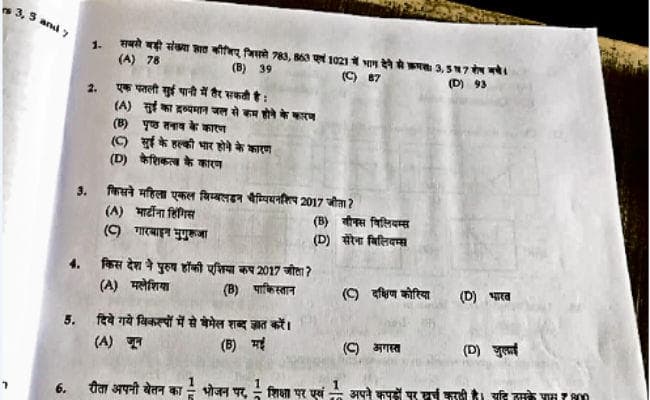 3, 5 and 7
1. सबसे बड़ी संख्या ज्ञात कीजिए जिससे 783, 863 एवं 1021 में भाग देने से क्रमशः 3, 5 व 7 शेष बचे।
(A) 78 (B) 39 (C) 87 (D) 93
2. एक पतली सुई पानी में तैर सकती है :
(A) सुई का द्रव्यमान जल से कम होने के कारण
(B) पृष्ठ तनाव के कारण
(C) सुई के हल्की भार होने के कारण
(D) केशिकत्व के कारण
3. किसने महिला एकल विम्बलडन चैम्पियनशिप 2017 जीता ?
(A) मार्टीना हिंगिस (B) वीनस विलियम्स
(C) गारबाइन मुगुरूजा (D) सेरेना विलियम्स
4. किस देश ने पुरुष हॉकी एशिया कप 2017 जीता ?
(A) मलेशिया (B) पाकिस्तान (C) दक्षिण कोरिया (D) भारत
5. दिये गये विकल्पों में से बेमेल शब्द ज्ञात करें।
(A) जून (B) मई (C) अगस्त (D) जुलाई
6. रीता अपनी वेतन का 1/5 भोजन पर, शिक्षा पर एवं अपने कपड़ों पर खर्च करती है। यदि उसके पास ₹ 800